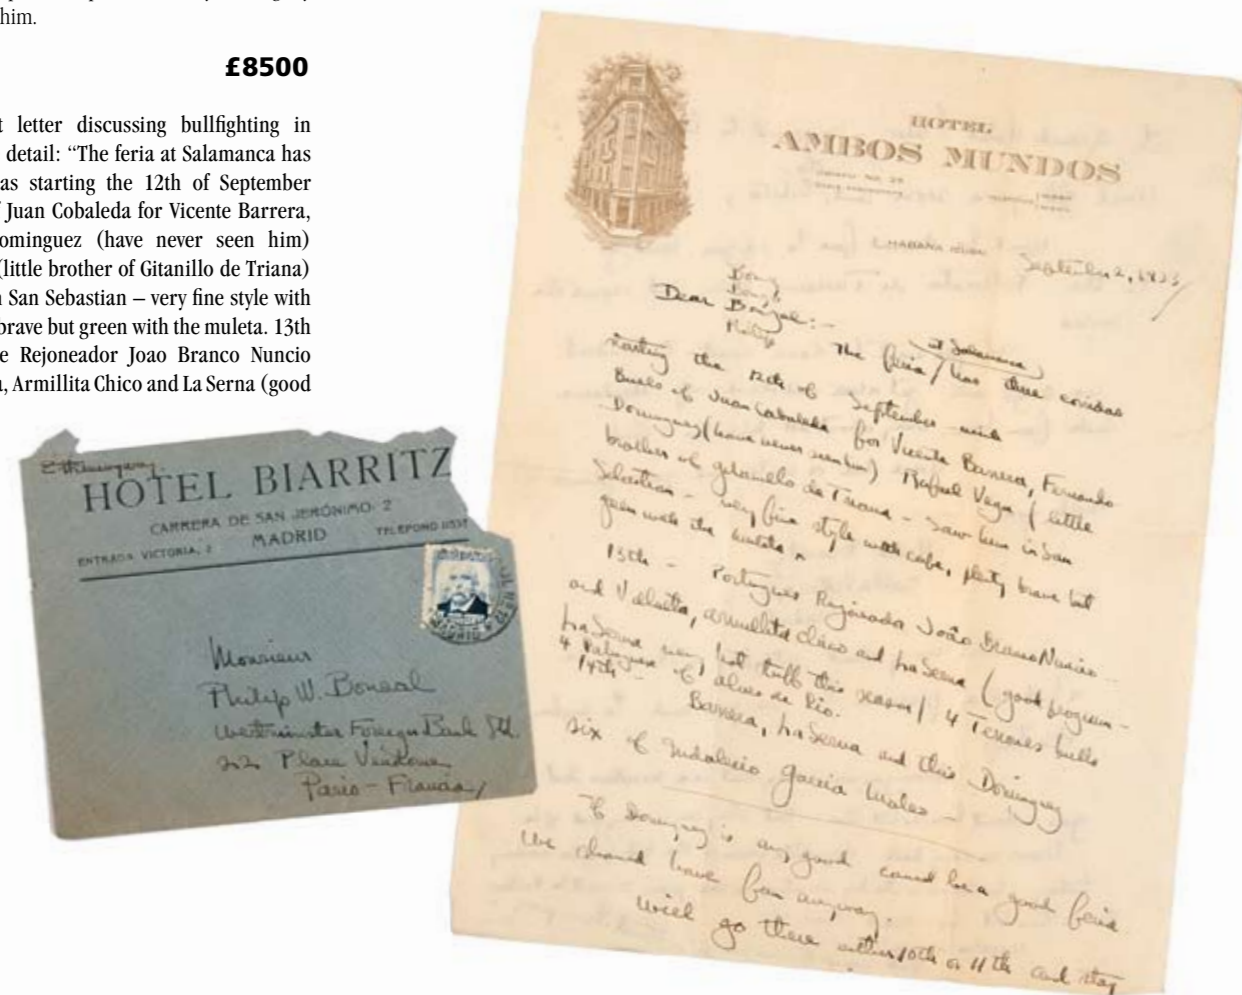 him.
£8500
t letter discussing bullfighting in
detail: “The feria at Salamanca has
as starting the 12th of September
f Juan Cobaleda for Vicente Barrera,
ominguez (have never seen him)
(little brother of Gitanillo de Triana)
n San Sebastian – very fine style with
brave but green with the muleta. 13th
e Rejoneador Joao Branco Nuncio
a, Armillita Chico and La Serna (good
HOTEL BIARRITZ
CARRERA DE SAN JERÓNIMO, 2
ENTRADA VICTORIA, 2 MADRID TELEFONO
Monsieur
Philip W. Bonsal
Westminster Foreign Bank Ltd.
22 Place Vendome
Paris – Francia
HOTEL
AMBOS MUNDOS
HABANA
September 2, 1933
Dear Bonsal:–
Philip
at Salamanca
The feria / has three corridas
starting the 12th of September with
Bulls of Juan Cobaleda for Vicente Barrera, Fernando
Dominguez (have never seen him) Rafael Vega (little
brother of gitanillo de Triana – Saw him in San
Sebastian – very fine style with cape, plenty brave but
green with the muleta.
13th – Portugues Rejoneador João Branco Nuncio –
and Villalta, armillita chico and La Serna (good program –
La Serna very hot stuff this season) 4 Terrones bulls
4 Portuguese of alves do Rio.
14th – Barrera, La Serna and this Dominguez
six of Indalecio Garcia Mateo –
If Dominguez is any good could be a good feria.
We should have fun anyway.
Will go there either 10th or 11th and stay